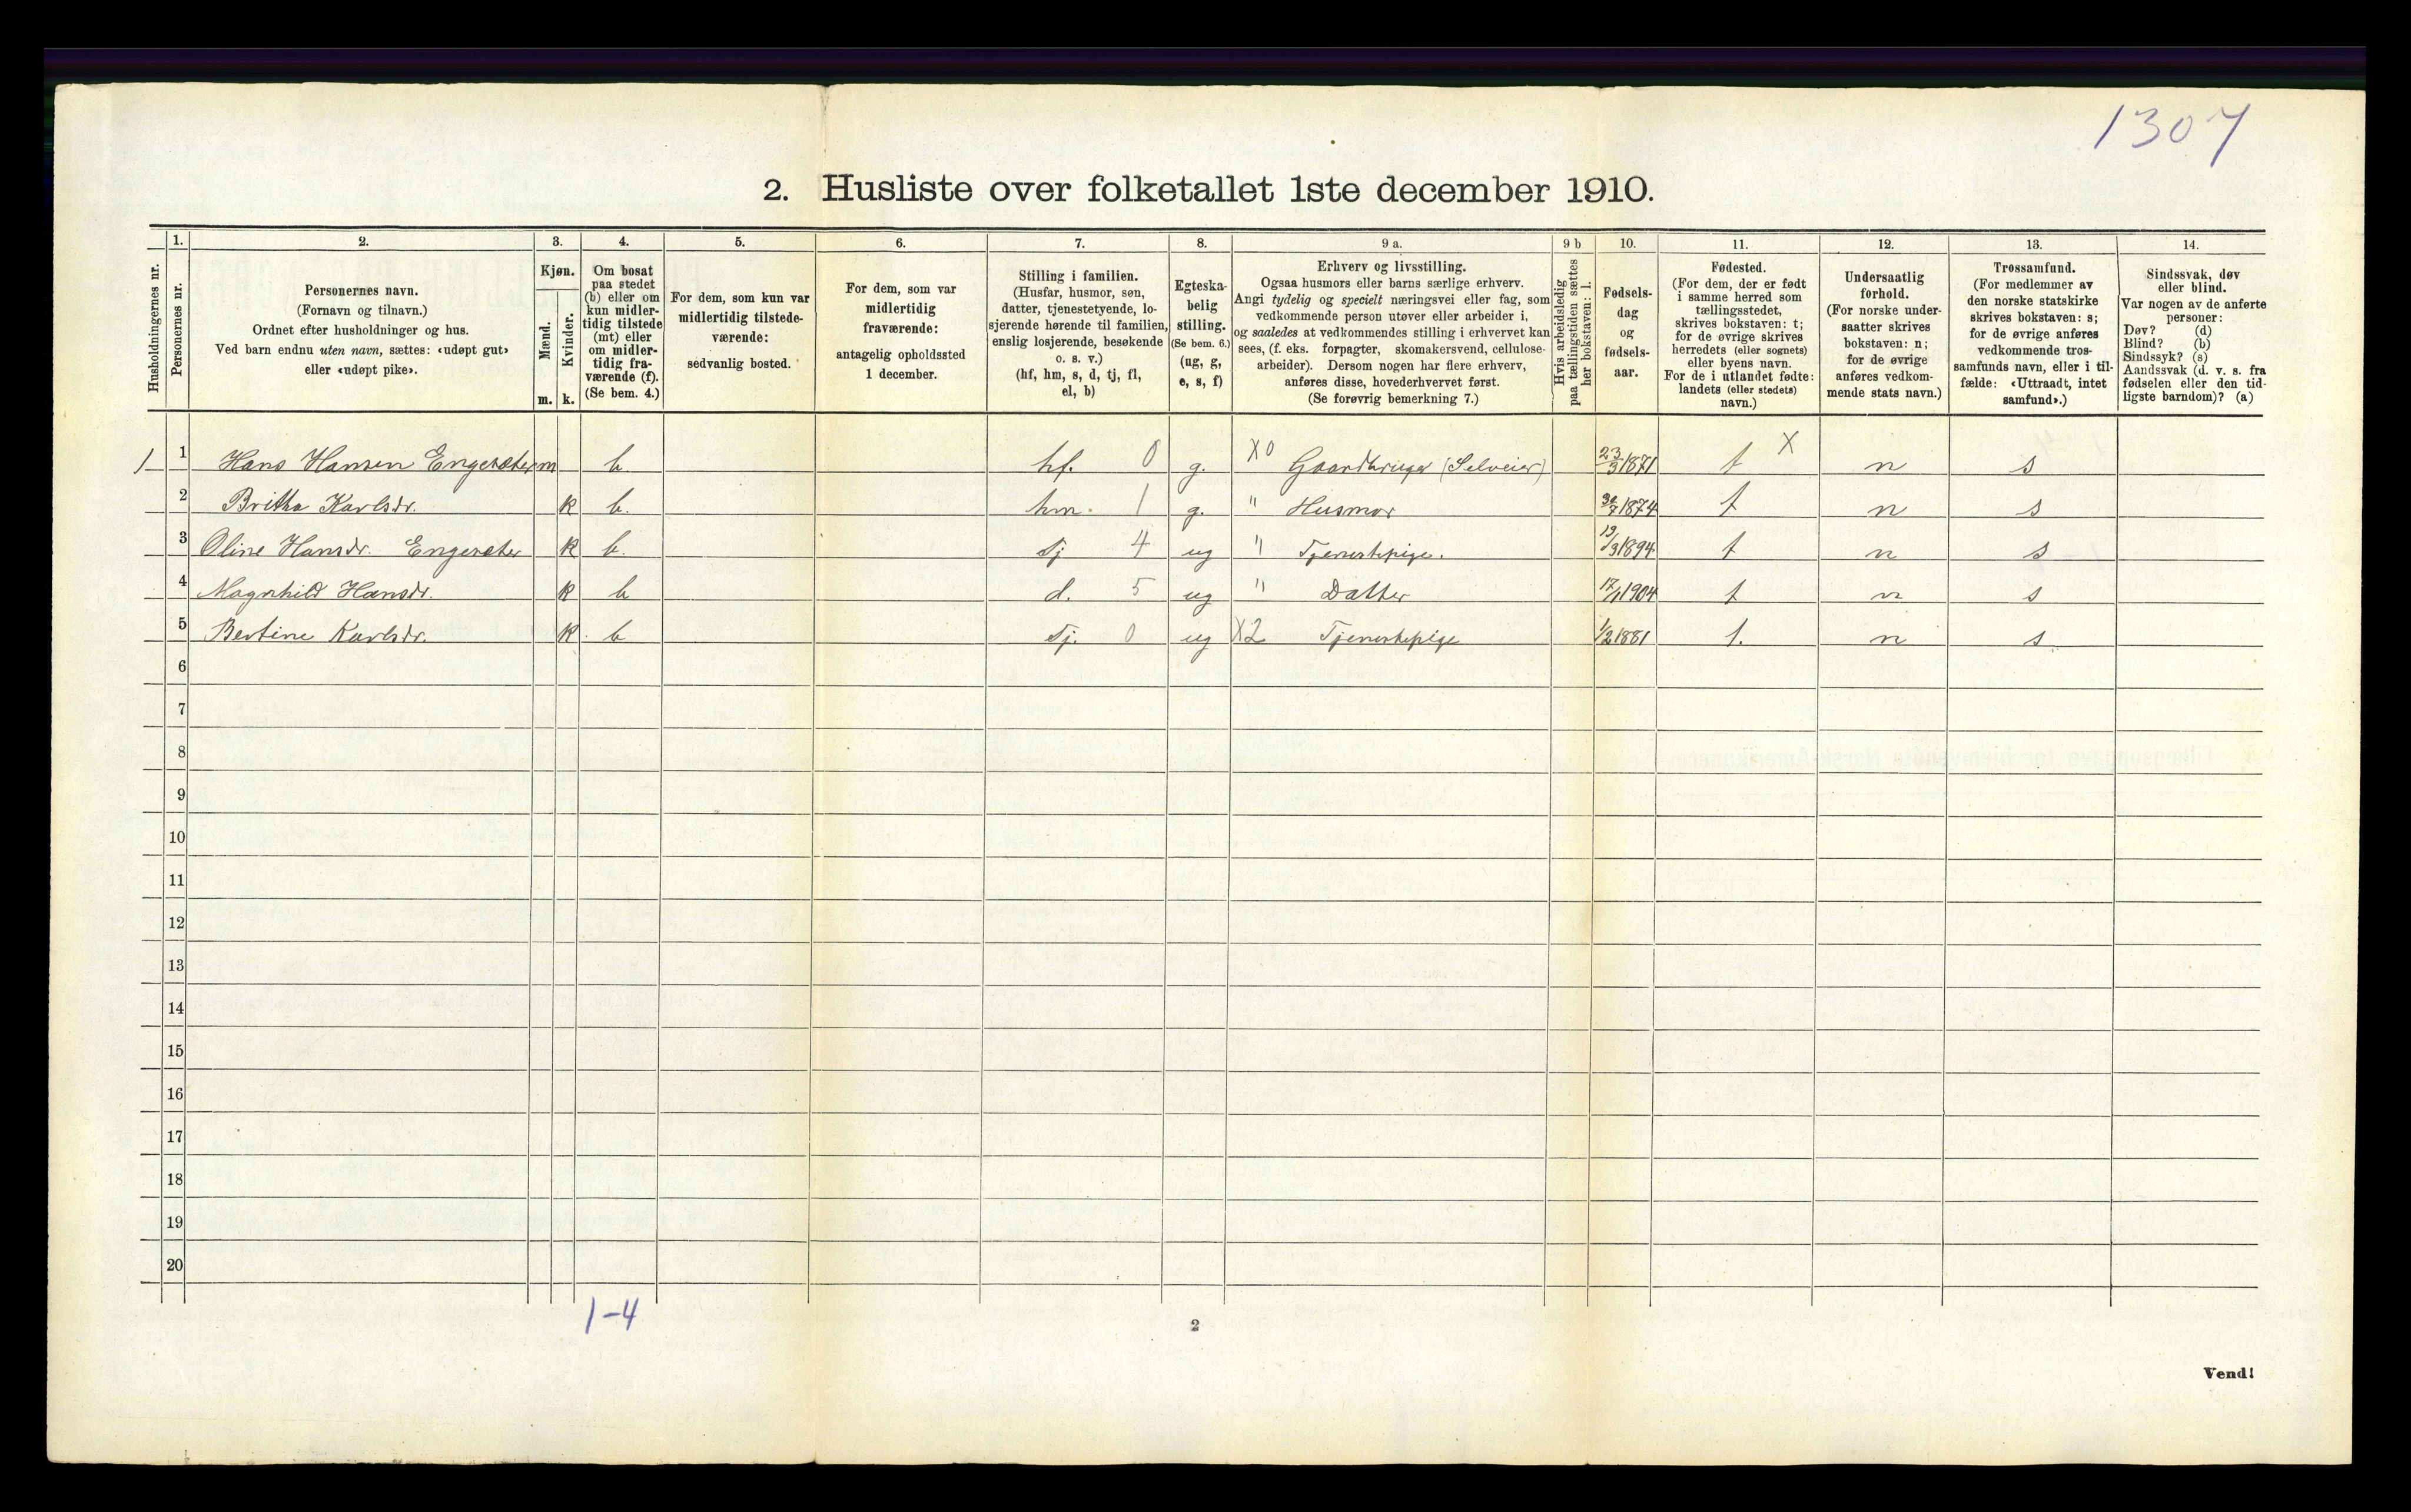 1307
2. Husliste over folketallet 1ste december 1910.
Husholdningernes nr.
1.
Personernes nr.
2.
Personernes navn.
(Fornavn og tilnavn.)
Ordnet efter husholdninger og hus.
Ved barn endnu uten navn, sættes: «udøpt gut»
eller «udøpt pike».
3.
Kjøn.
Mænd.
Kvinder.
m. k.
4.
Om bosat
paa stedet
(b) eller om
kun midler-
tidig tilstede
(mt) eller
om midler-
tidig fra-
værende (f).
(Se bem. 4.)
5.
For dem, som kun var
midlertidig tilstede-
værende:
sedvanlig bosted.
6.
For dem, som var
midlertidig
fraværende:
antagelig opholdssted
1 december.
7.
Stilling i familien.
(Husfar, husmor, søn,
datter, tjenestetyende, lo-
sjerende hørende til familien,
enslig losjerende, besøkende
o. s. v.)
(hf, hm, s, d, tj, fl,
el, b)
8.
Egteska-
belig
stilling.
(Se bem. 6.)
(ug, g,
e, s, f)
9 a.
Erhverv og livsstilling.
Ogsaa husmors eller barns særlige erhverv.
Angi tydelig og specielt næringsvei eller fag, som
vedkommende person utøver eller arbeider i,
og saaledes at vedkommendes stilling i erhvervet kan
sees, (f. eks. forpagter, skomakersvend, cellulose-
arbeider). Dersom nogen har flere erhverv,
anføres disse, hovederhvervet først.
(Se forøvrig bemerkning 7.)
9 b
Hvis arbeidsledig
paa tællingstiden sættes
her bokstaven: l.
10.
Fødsels-
dag
og
fødsels-
aar.
11.
Fødested.
(For dem, der er født
i samme herred som
tællingsstedet,
skrives bokstaven: t;
for de øvrige skrives
herredets (eller sognets)
eller byens navn.
For de i utlandet fødte:
landets (eller stedets)
navn.)
12.
Undersaatlig
forhold.
(For norske under-
saatter skrives
bokstaven: n;
for de øvrige
anføres vedkom-
mende stats navn.)
13.
Trossamfund.
(For medlemmer av
den norske statskirke
skrives bokstaven: s;
for de øvrige anføres
vedkommende tros-
samfunds navn, eller i til-
fælde: «Uttraadt, intet
samfund».)
14.
Sindssvak, døv
eller blind.
Var nogen av de anførte
personer:
Døv? (d)
Blind? (b)
Sindssyk? (s)
Aandssvak (d. v. s. fra
fødselen eller den tid-
ligste barndom)? (a)
1 1 Hans Hansen Engesæter m b. hf. 0 g. X0 Gaardbruger (Selveier) 23/3 1871 t X n s
2 Britha Karlsdr. k b. hm. 1 g. " Husmor 30/7 1874 t n s
3 Oline Hansdr. Engesæter k b. Tj 4 ug " Tjenestepige. 19/3 1894 t n s
4 Magnhild Hansdr. k b d. 5 ug " Datter 17/1 1904 t n s
5 Bertine Karlsdr. k b Tj. 0 ug X2 Tjenestepige 1/2 1881 t. n s
6
7
8
9
10
11
12
13
14
15
16
17
18
19
20
1-4
2
Vend!